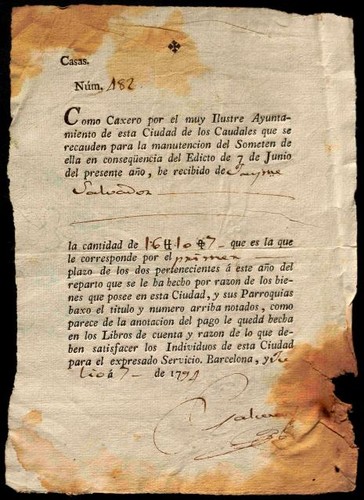 Casas.
Núm. 182
Como Caxero por el muy Ilustre Ayunta-
miento de esta Ciudad de los Caudales que se
recauden para la manutencion del Someten de
ella en conseqüencia del Edicto de 7 de Junio
del presente año, he recibido de Jayme
Salvador
la cantidad de 16 ⸗ 10 ⸗ 7 - que es la que
le corresponde por el primer
plazo de los dos pertenecientes á este año del
reparto que se le ha hecho por razon de los bie-
nes que posee en esta Ciudad, y sus Parroquias
baxo el titulo y numero arriba notados, como
parece de la anotacion del pago le queda hecha
en los Libros de cuenta y razon de lo que de-
ben satisfacer los Individuos de esta Ciudad
para el expresado Servicio. Barcelona, y Ju
lio á 7 - de 1794